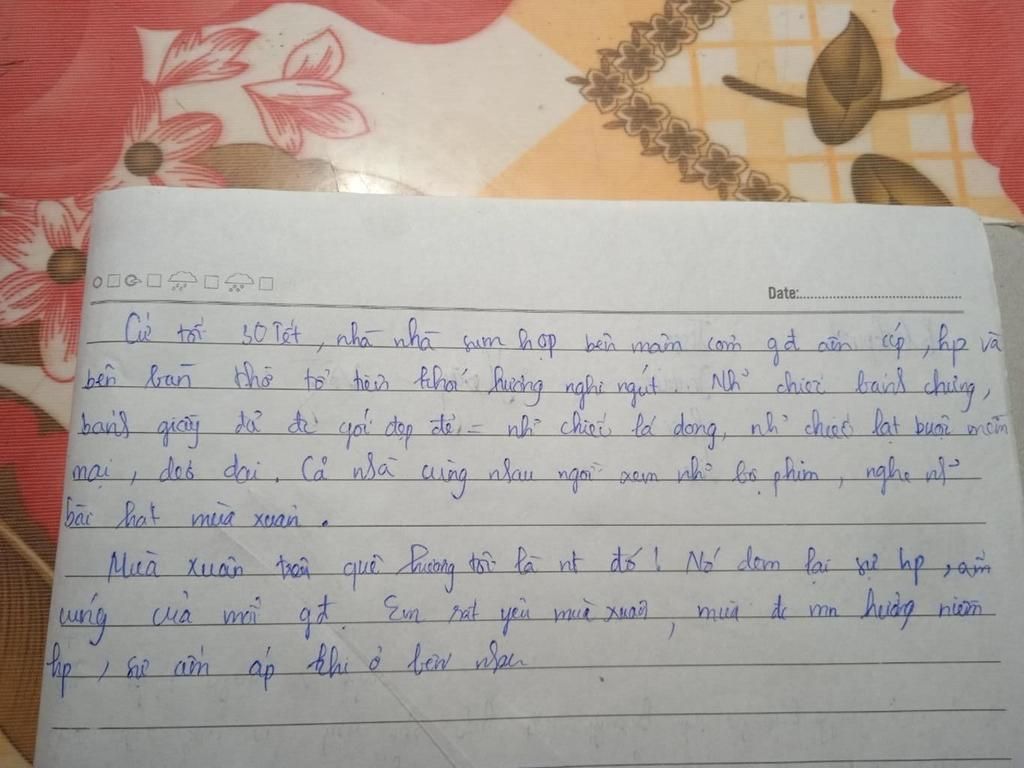 Date:
Cứ tối 30 Tết, nhà nhà sum họp bên mâm cơm gđ ấm cúp, hp và
bên bàn thờ tổ tiên khói hương nghi ngút. Nhữ chiếc bánh chưng,
bánh giầy đã đc gói đẹp đẽ = nhữ chiếc lá dong, nhữ chiếc lạt buộc mềm
mại, dẻo dai. Cả nhà cùng nhau ngồi xem nhữ bộ phim, nghe nhữ
bài hát mùa xuân.
Mùa xuân trên quê hương tôi là nt đó! Nó đem lại sự hp, ấm
cúng của mỗi gđ. Em rất yêu mùa xuân, mùa đc mn hưởng niềm
hp, sự ấm áp khi ở bên nhau